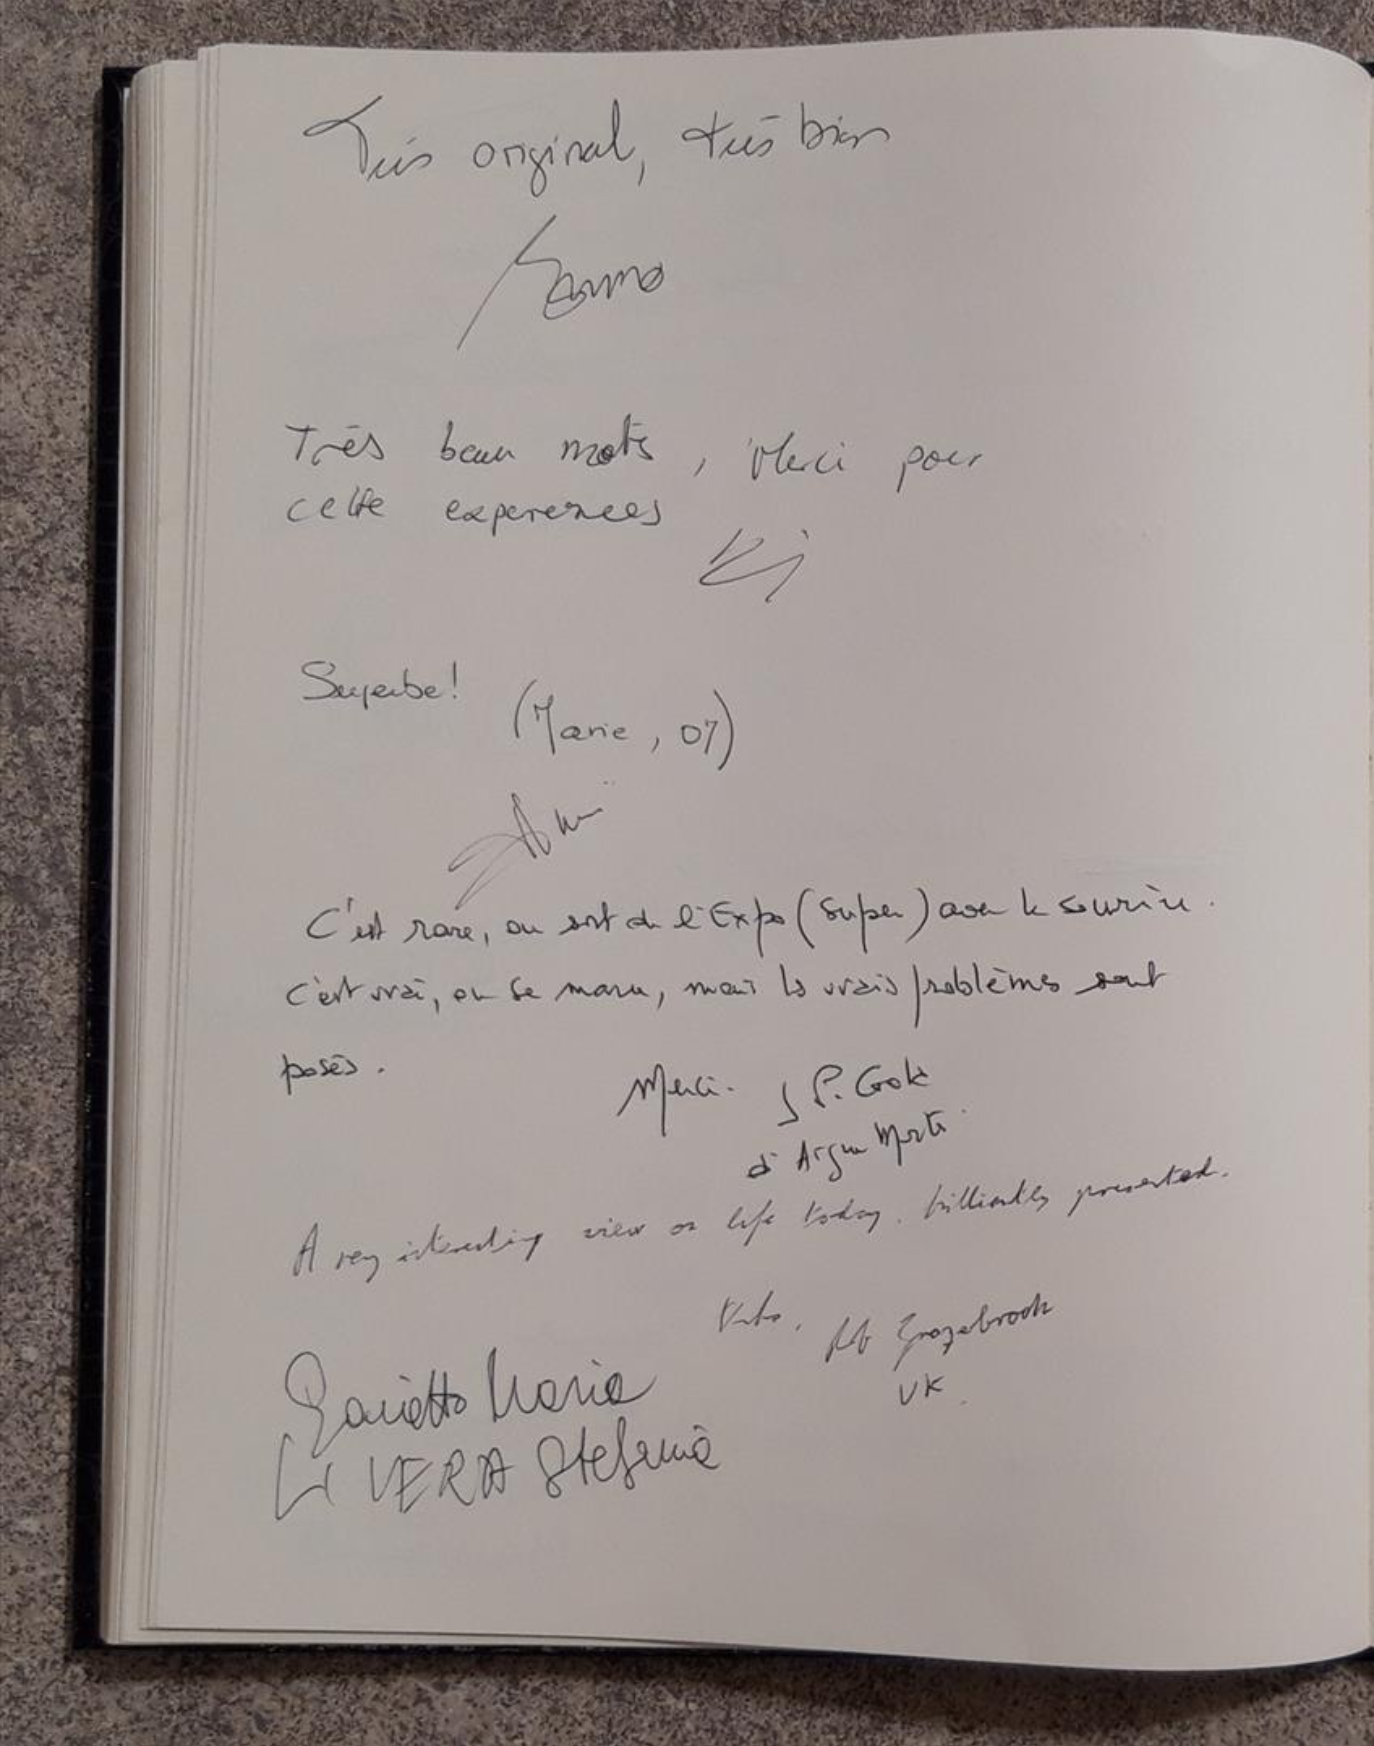 Très original, très bien
Très beau mots, Merci pour
cette experences
Superbe!
(Marie, 07)
C'est rare, on sort de l'Expo (super) avec le sourire.
c'est vrai, on se marre, mais les vrais problèmes sont
posés.
Merci. J P.
d'Aigues Mortes
A very interesting view on life today, brilliantly presented.
Rob Grazebrook
UK.
Maria
VERA Stefania